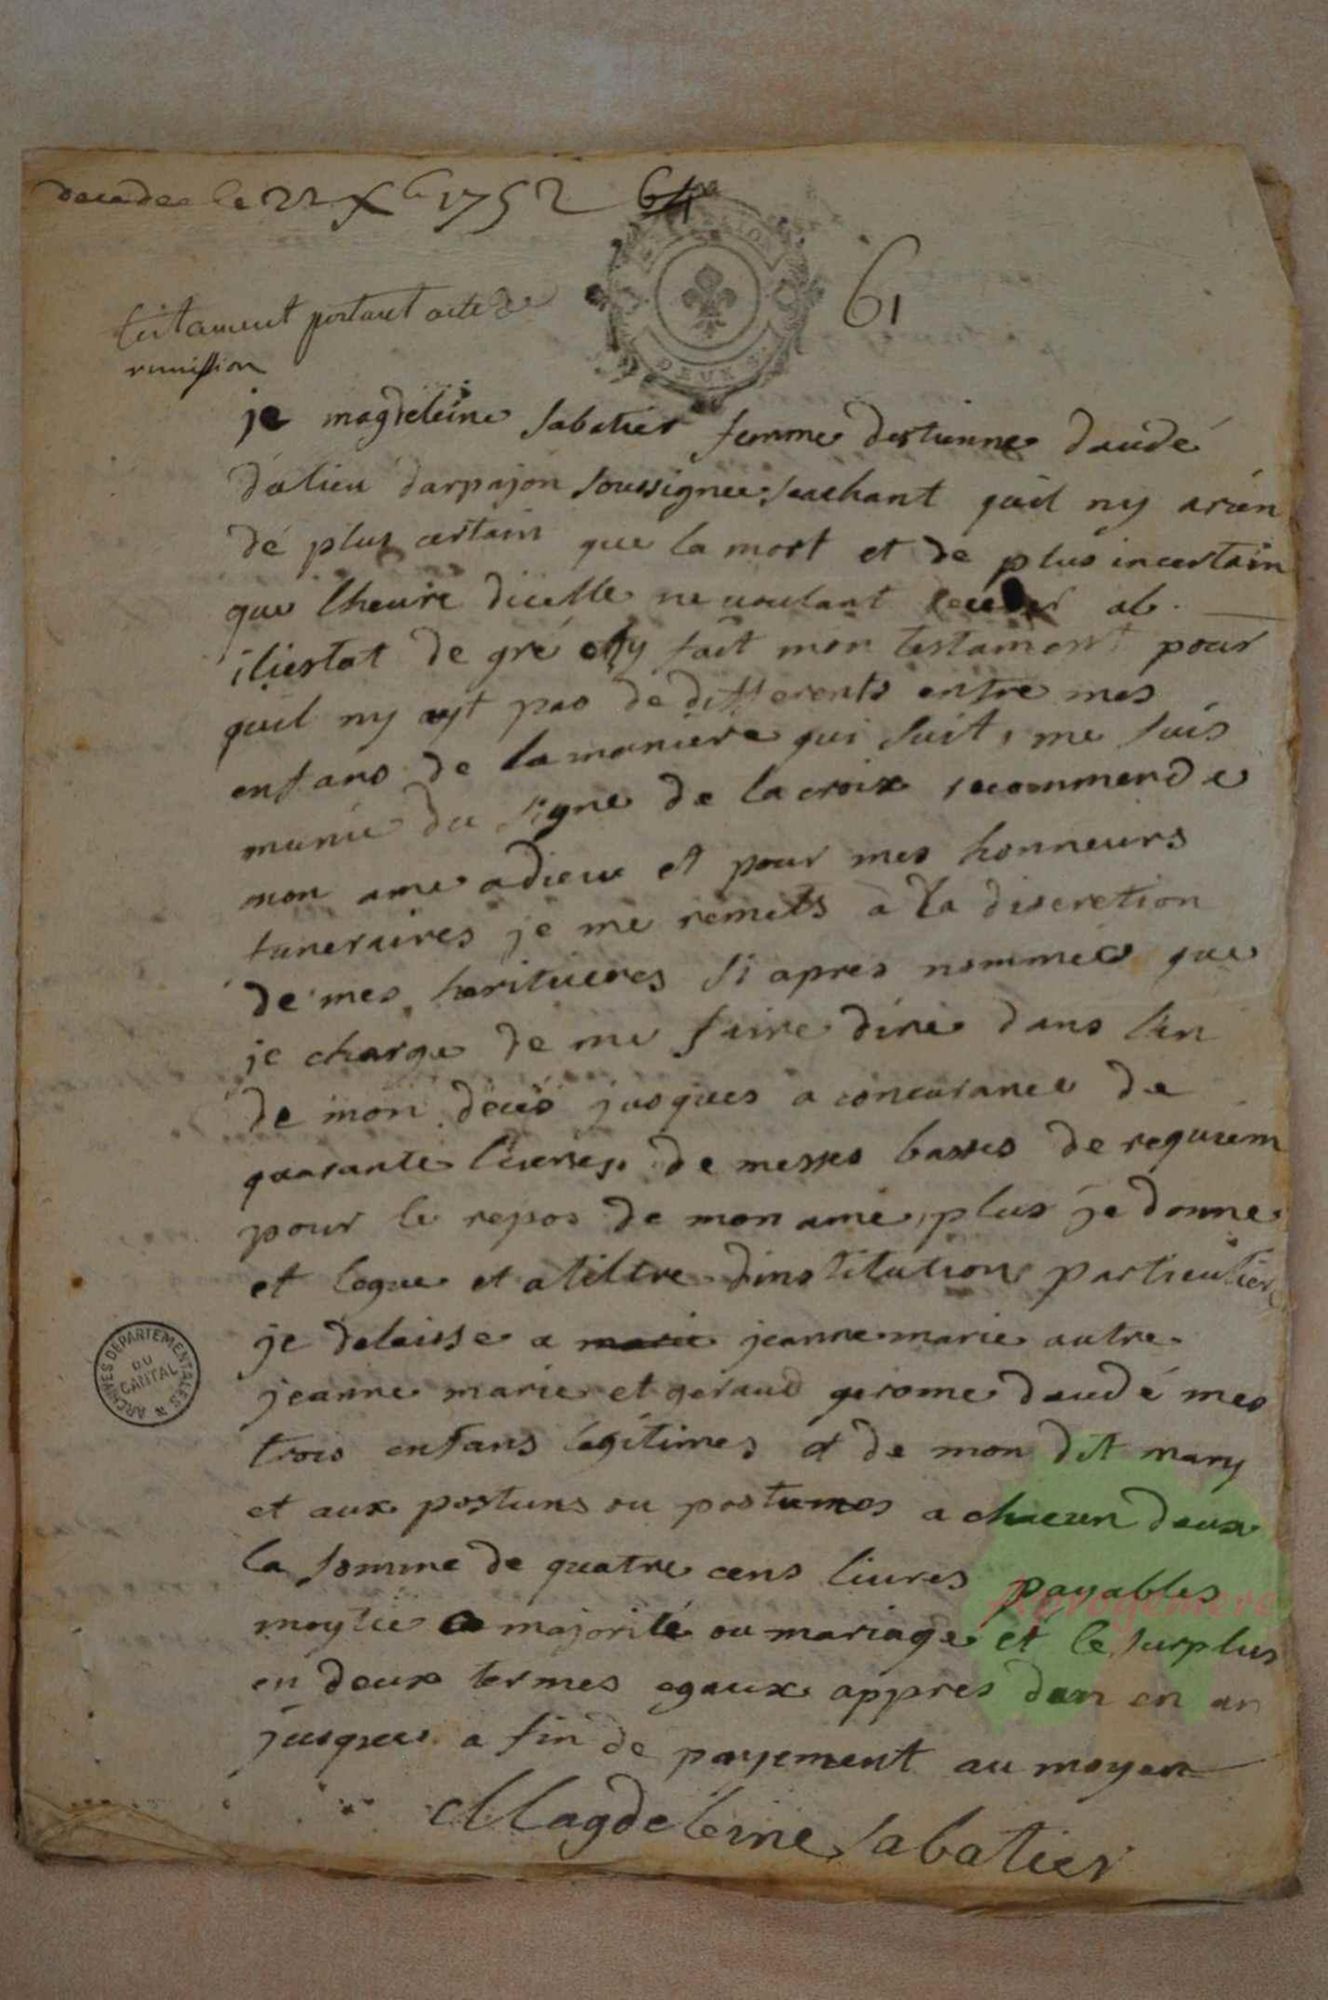 decedee le 22 Xbre 1752 64
61
testament portant acte de
remission
GENERATION
DEUX S.
je magdeleine sabatier femme destienne daudé
dulieu darpajon soussignee sachant quil ny arien
dé plus certain que la mort et de plus incertain
que lheure dicelle ne voulant deceder ab.
illestat de gré ay fait mon testament pour
quil ny ayt pas de differents entre mes
enfans de la maniere qui suit, me suis
munie du signe de la croix recommende
mon ame adieu et pour mes honneurs
funeraires je me remets a la discretion
de mes heritieres si apres nommées que
je charge de me faire dire dans lan
de mon deces jusques a concurance de
quarante livres de messes basses de requiem
pour le repos de mon ame, plus je donne
et legue et atiltre dinstitution particuliere
je delaisse a marie jeanne marie autre
jeanne marie et geraud gerome daudé mes
trois enfans legitimes et de mon dit mary
et aux postuns ou postumes a chacun deux
la somme de quatre cens livres payables
moytie a majorité ou mariage et le surplus
en deux termes egaux appres dan en an
jusques a fin de payement au moyen
Magdeleine sabatier
ARCHIVES DEPARTEMENTALES
DU
CANTAL
Aprogemere